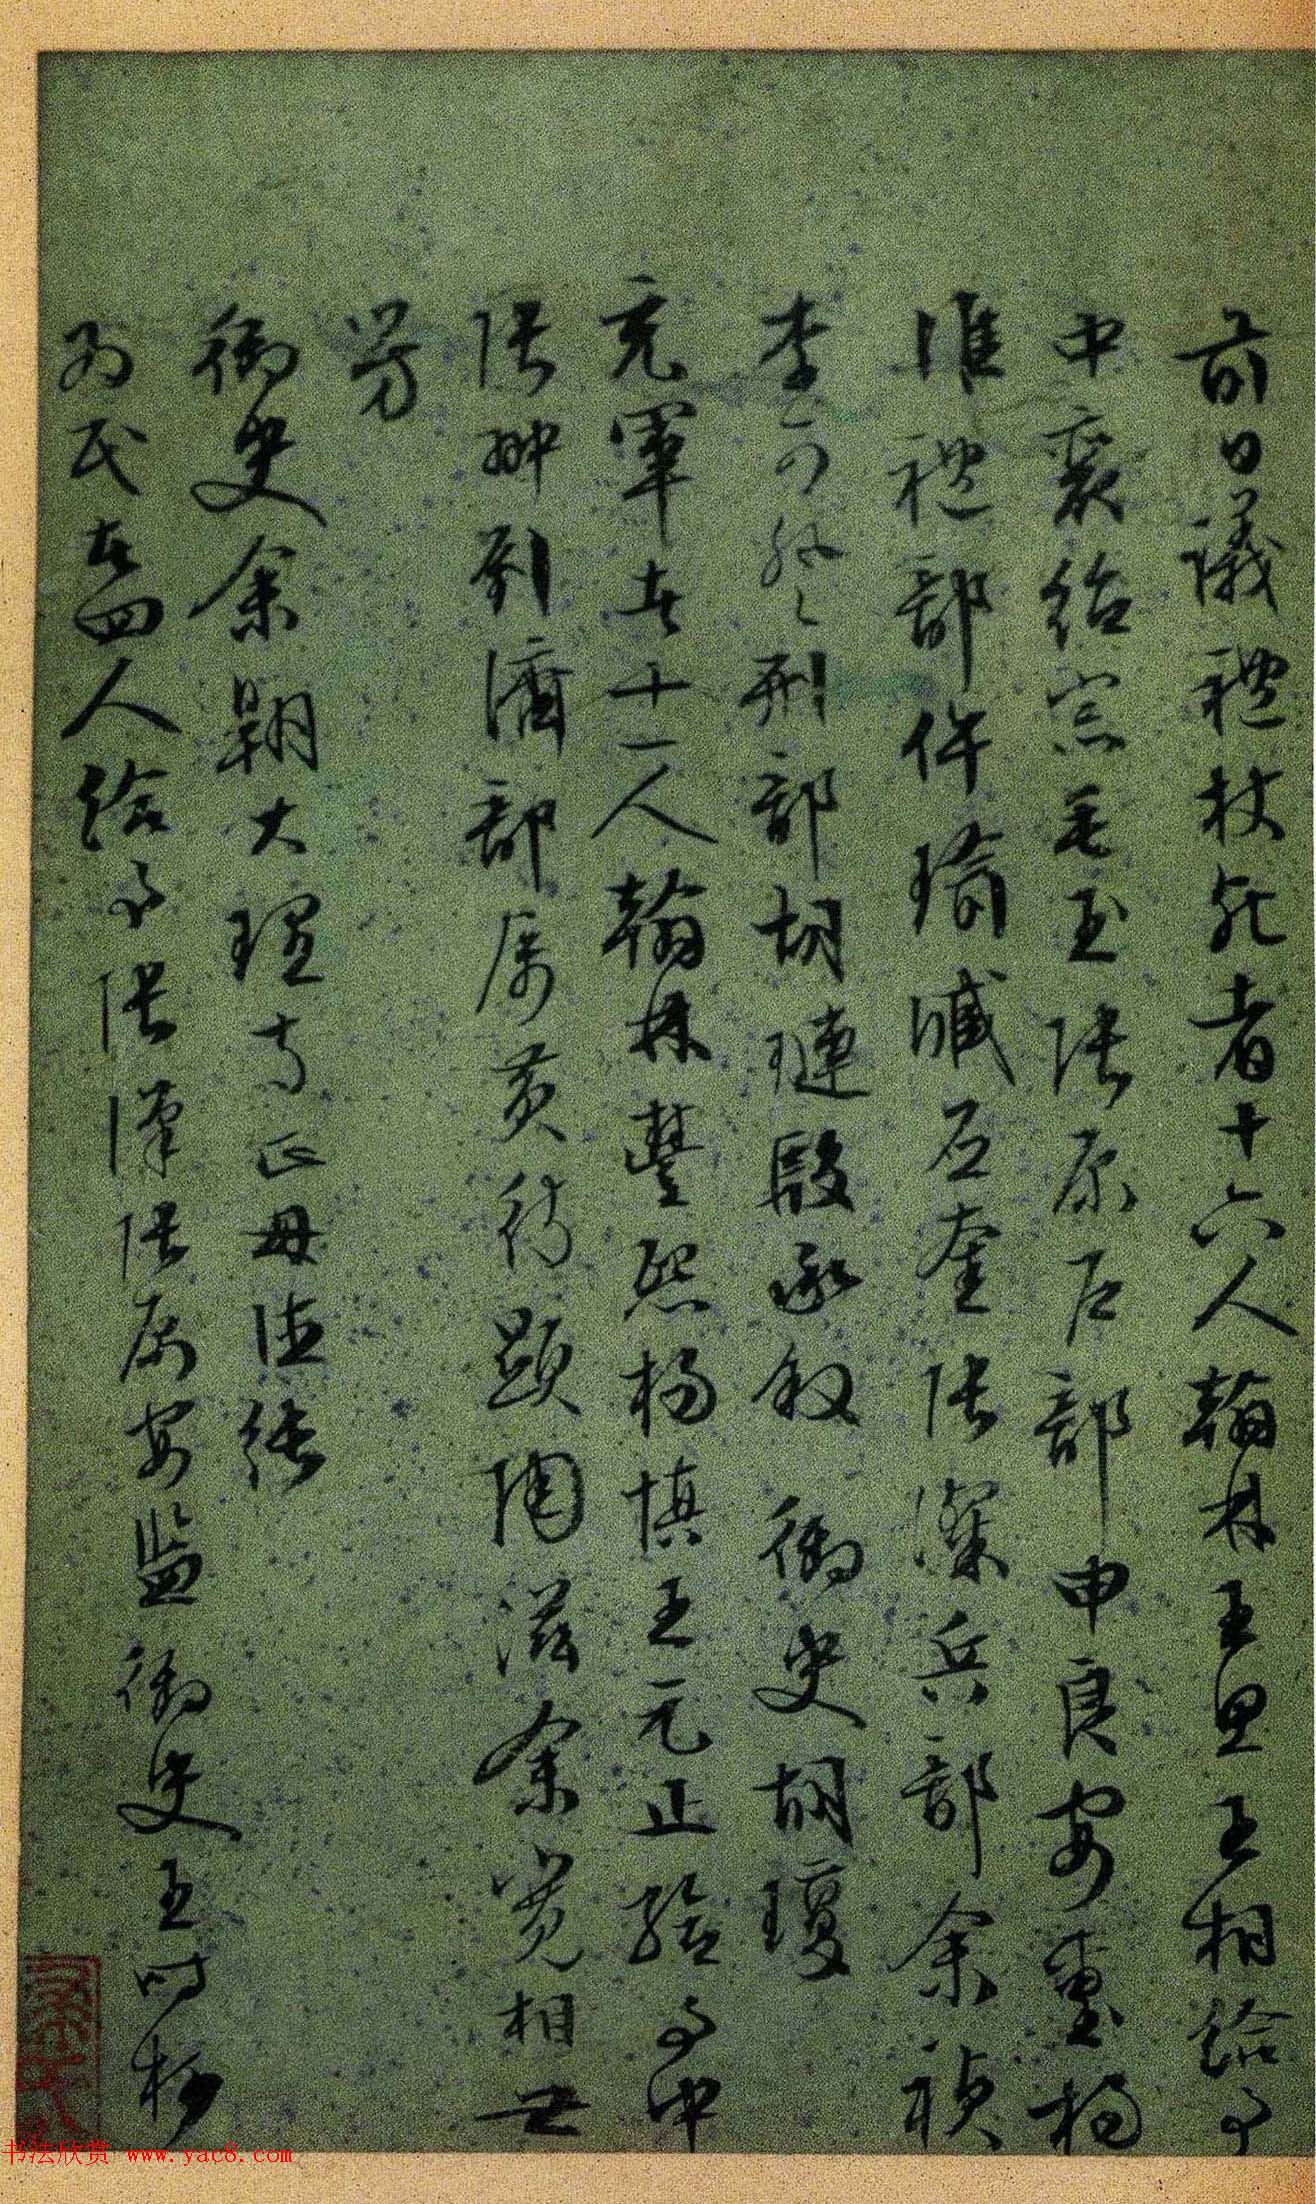 前日議禮杖死者十六人翰林王思王相給事
中裴紹宗毛玉張原戶部申良安璽楊
淮禮部仵瑜臧應奎張澯兵部余禎
李可登刑部胡璉殷承叙御史胡瓊
充軍者十一人翰林豐熙楊慎王元正給事中
張翀劉濟部屬黃待顯陶滋余寬相世
芳
御史余翶大理寺正母德純
為民者四人給事張漢張原安監御史王時柯
书法欣赏 www.yac8.com